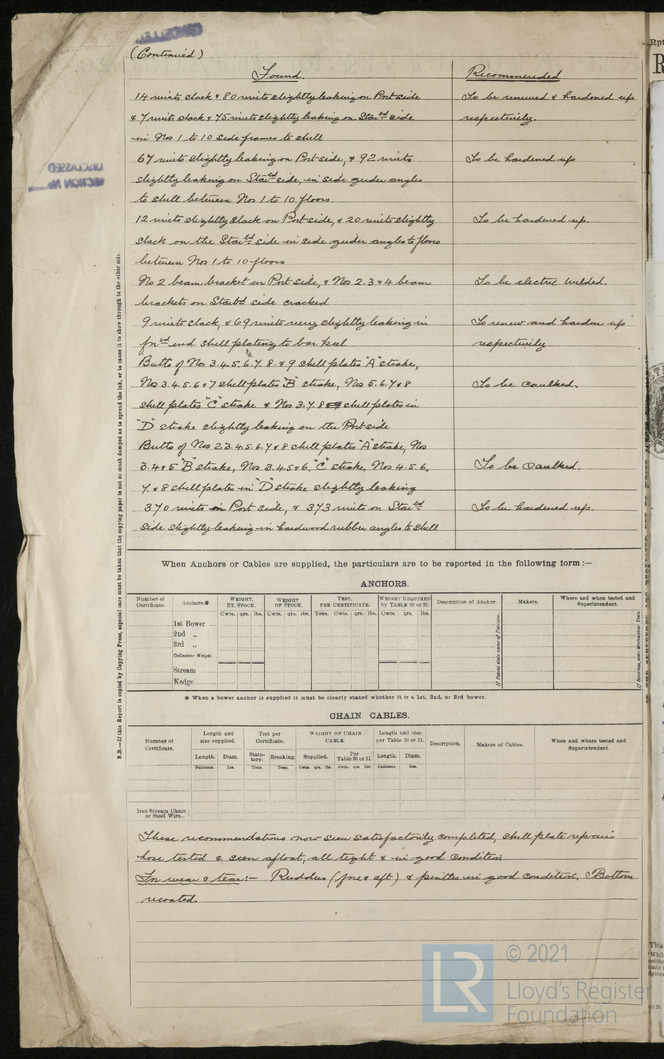 (Continued)
Found. Recommended
14 rivets slack & 80 rivets slightly leaking on Port side To be renewed & hardened up
& 7 rivets slack & 75 rivets slightly leaking on Starbd side respectively.
in Nos 1 to 10 side frames to shell
67 rivets slightly leaking on Port side, & 92 rivets To be hardened up
slightly leaking on Starbd side, in side girder angles
to shell between Nos 1 to 10 floors.
12 rivets slightly slack on Port side, & 20 rivets slightly To be hardened up.
slack on the Starbd side in side girder angles to floors
between Nos 1 to 10 floors
No 2 beam bracket on Port side, & Nos 2.3 & 4 beam To be electric welded.
brackets on Starbd side cracked
9 rivets slack, & 69 rivets very slightly leaking in To renew and harden up
for'd end shell plating to bar keel respectively
Butts of Nos 3.4.5.6.7.8. & 9 shell plates "A" strake,
Nos 3.4.5.6 & 7 shell plates "B" strake, Nos 5.6.7 & 8 To be caulked.
shell plates "C" strake & Nos 3.7.8 shell plates in
"D" strake slightly leaking on the Port side
Butts of Nos 2 3.4.5.6.7 & 8 shell plates "A" strake, Nos
3.4 & 5 "B" strake, Nos 3.4.5 & 6, "C" strake, Nos 4.5.6, To be caulked.
7 & 8 shell plates in "D" strake slightly leaking
370 rivets on Port side, & 373 rivets on Starbd To be hardened up.
side slightly leaking in hardwood rubber angles to shell
When Anchors or Cables are supplied, the particulars are to be reported in the following form :—
ANCHORS.
Number of Certificate. Anchors.* WEIGHT, EX. STOCK. WEIGHT OF STOCK. TEST, PER CERTIFICATE. WEIGHT REQUIRED by TABLE 30 or 31. Description of Anchor. Makers. Where and when tested and Superintendent.
Cwts. qrs. lbs. Cwts. qrs. lbs. Tons. Cwts. qrs. lbs. Cwts. qrs. lbs.
1st Bower ...
2nd „
3rd „
Collective Weight
Stream
Kedge
* When a bower anchor is supplied it must be clearly stated whether it is a 1st, 2nd, or 3rd bower.
CHAIN CABLES.
Number of Certificate. Length and size supplied. Test per Certificate. WEIGHT OF CHAIN CABLE. Length and size per Table 30 or 31. Description. Makers of Cables. When and where tested and Superintendent.
Length. Diam. Statutory. Breaking. Supplied. Per Table 30 or 31. Length. Diam.
Fathoms. Ins. Tons. Tons. Cwts. qrs. lbs. Cwts. qrs. lbs. Fathoms. Ins.
Iron Stream Chain or Steel Wire
These recommendations now seen satisfactorily completed, shell plate repairs
hose tested & seen afloat, all tight & in good condition
For wear & tear:— Rudders (fore & aft) & pintles in good condition. Bottom
recoated.
N.B.—If this Report is copied by Copying Press, especial care must be taken that the copying paper is not so much damped as to spread the ink, or to cause it to show through to the other side.
© 2021
LR
Lloyd's Register
Foundation